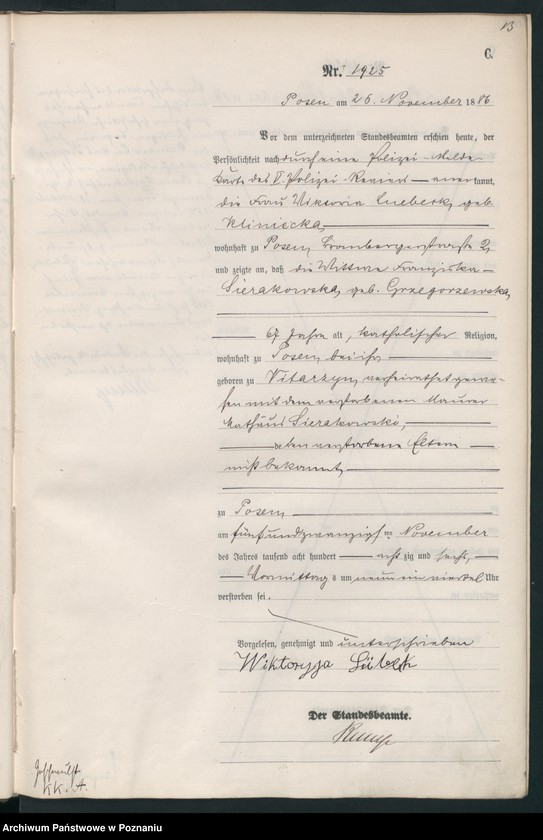 13
C.
Nr. 1925
Posen am 26. November 1886
Vor dem unterzeichneten Standesbeamten erschien heute, der
Persönlichkeit nach durch eine Polizei-Melde-
karte des V. Polizei-Reviers anerkannt,
die Frau Wiktoria geb.
Kliniecka,
wohnhaft zu Posen, Brombergerstraße 2,
und zeigte an, daß die Wittwe Franziska
Sierakowska, geb. Grzegorzewska,
67 Jahre alt, katholischer Religion,
wohnhaft zu Posen, bei ihr
geboren zu Vitarzyn, verheirathet gewe-
sen mit dem verstorbenen Maurer
Mathäus Sierakowski,
deren verstorbene Eltern
nicht bekannt,
zu Posen,
am fünfundzwanzigsten November
des Jahres tausend acht hundert achtzig und sechs,
Vormittags um neun ein viertel Uhr
verstorben sei.
Vorgelesen, genehmigt und unterschrieben
Wiktoryja Lübek
Der Standesbeamte.
K.K. A.
Archiwum Państwowe w Poznaniu